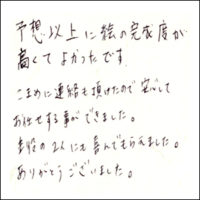 予想以上に絵の完成度が
高くてよかったです。
こまめに連絡も頂けたので安心して
お任せする事ができました。
主役の2人にも喜んでもらえました。
ありがとうございました。